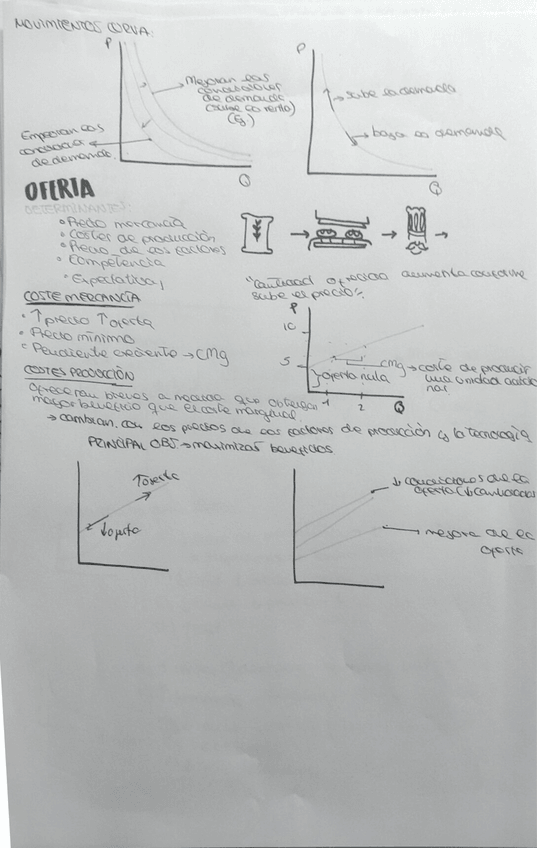 MOVIMIENTOS CURVA:
P
Mejoran las
condiciones
de demanda
(sube la renta)
Empeoran las
de demanda
Q
P
sube la demanda
baja la demanda
Q
OFERTA
DETERMINANTES:
• Precio mercancía
• Costes de producción
• Precio de los factores
• Competencia
• Expectativas
"Cantidad ofrecida aumenta conforme
sube el precio".
COSTE MERCANCÍA
• ↑ precio ↑ oferta
• Precio mínimo
• Pendiente creciente → CMg
P
10
5
Oferta nula
1
2
Q
CMg → coste de producir
una unidad adicio
nal
COSTES PRODUCCIÓN
Ofrecerán bienes a medida que obtengan
mayor beneficio que el coste marginal
→ cambian con los precios de los factores de producción y la tecnología
PRINCIPAL OBJ → maximizar beneficios
↑ oferta
↓ oferta
↓ condiciones de la
oferta (↓ cantidades
mejora de la
oferta